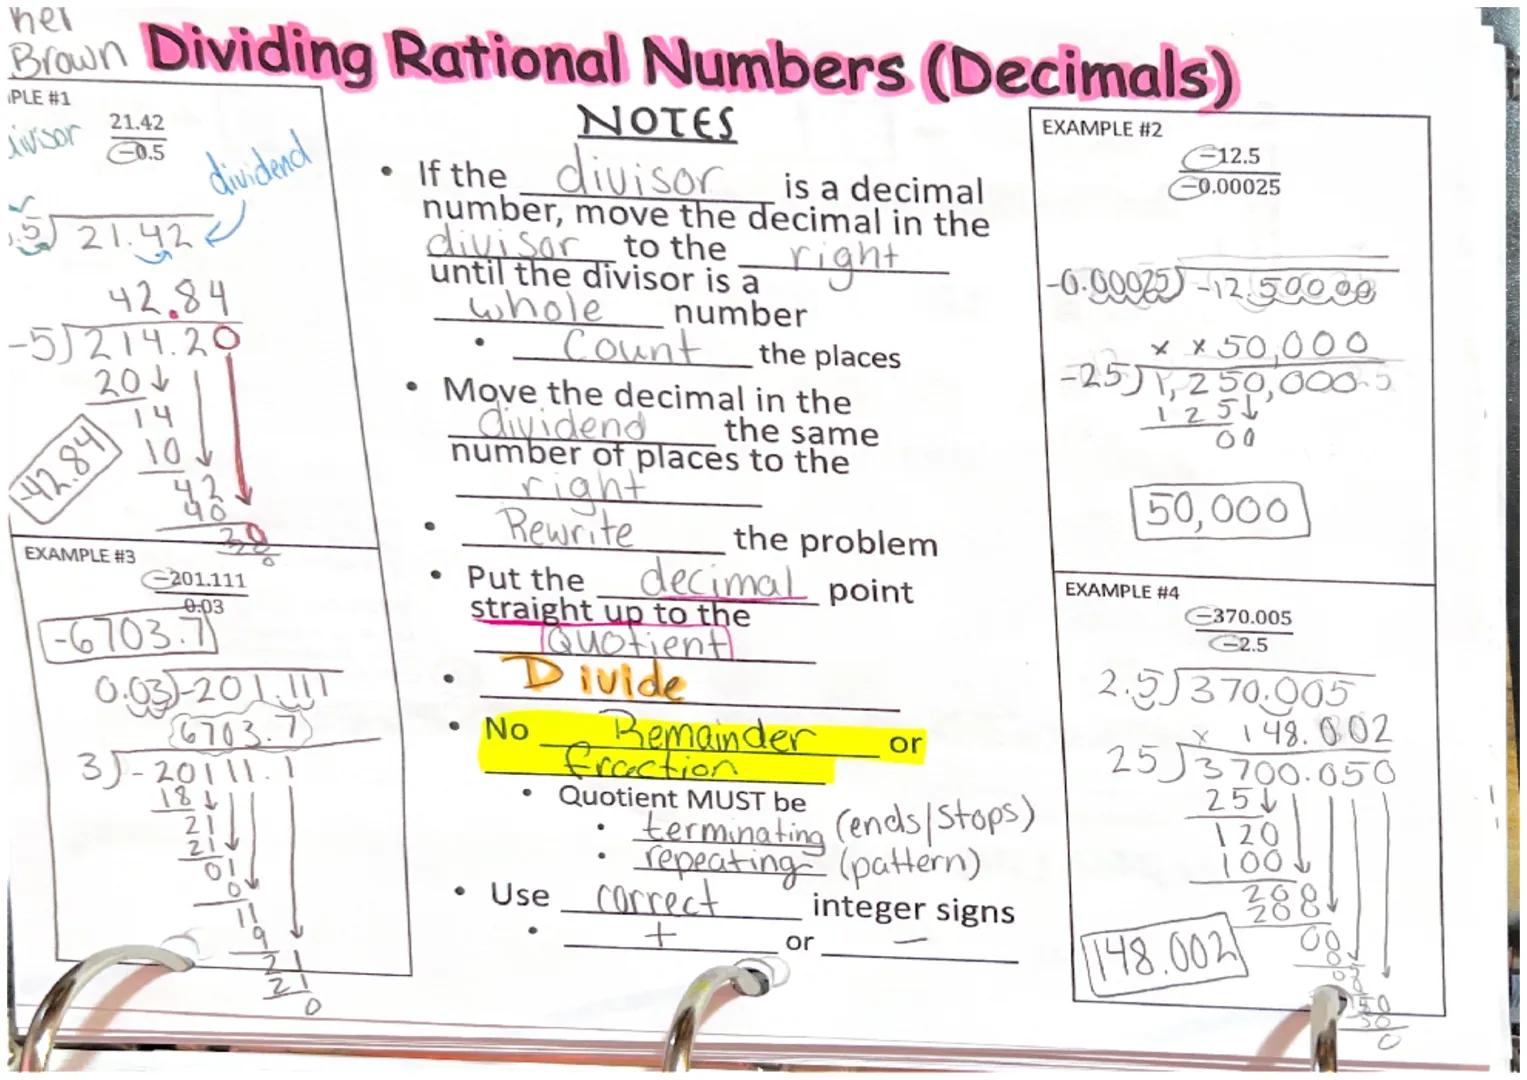 her
Brown
Dividing Rational Numbers (Decimals)
PLE #1
ivisor
21.42
-0.5
dividend
.5)21.42
42.84
-5)214.20
20
14
10
42
40
20
20
0
-42.84
NOTES
• If the divisor is a decimal
number, move the decimal in the
divisor to the right
until the divisor is a
whole number
• Count the places
• Move the decimal in the
dividend the same
number of places to the
right
• Rewrite the problem
• Put the decimal point
straight up to the
Quotient
• Divide
• No Remainder or
fraction
• Quotient MUST be
• terminating (ends/stops)
• repeating (pattern)
• Use correct integer signs
• + or −
EXAMPLE #2
-12.5
-0.00025
-0.00025)-12.50000
x x 50,000
-25)1,250,000
125
00
50,000
EXAMPLE #3
-201.111
0.03
-6703.7
0.03)-201.111
6703.7
3)-20111.1
18
21
21
01
0
11
9
21
21
0
EXAMPLE #4
-370.005
-2.5
2.5)370.005
x 148.002
25)3700.050
25
120
100
200
200
00
50
50
0
148.002